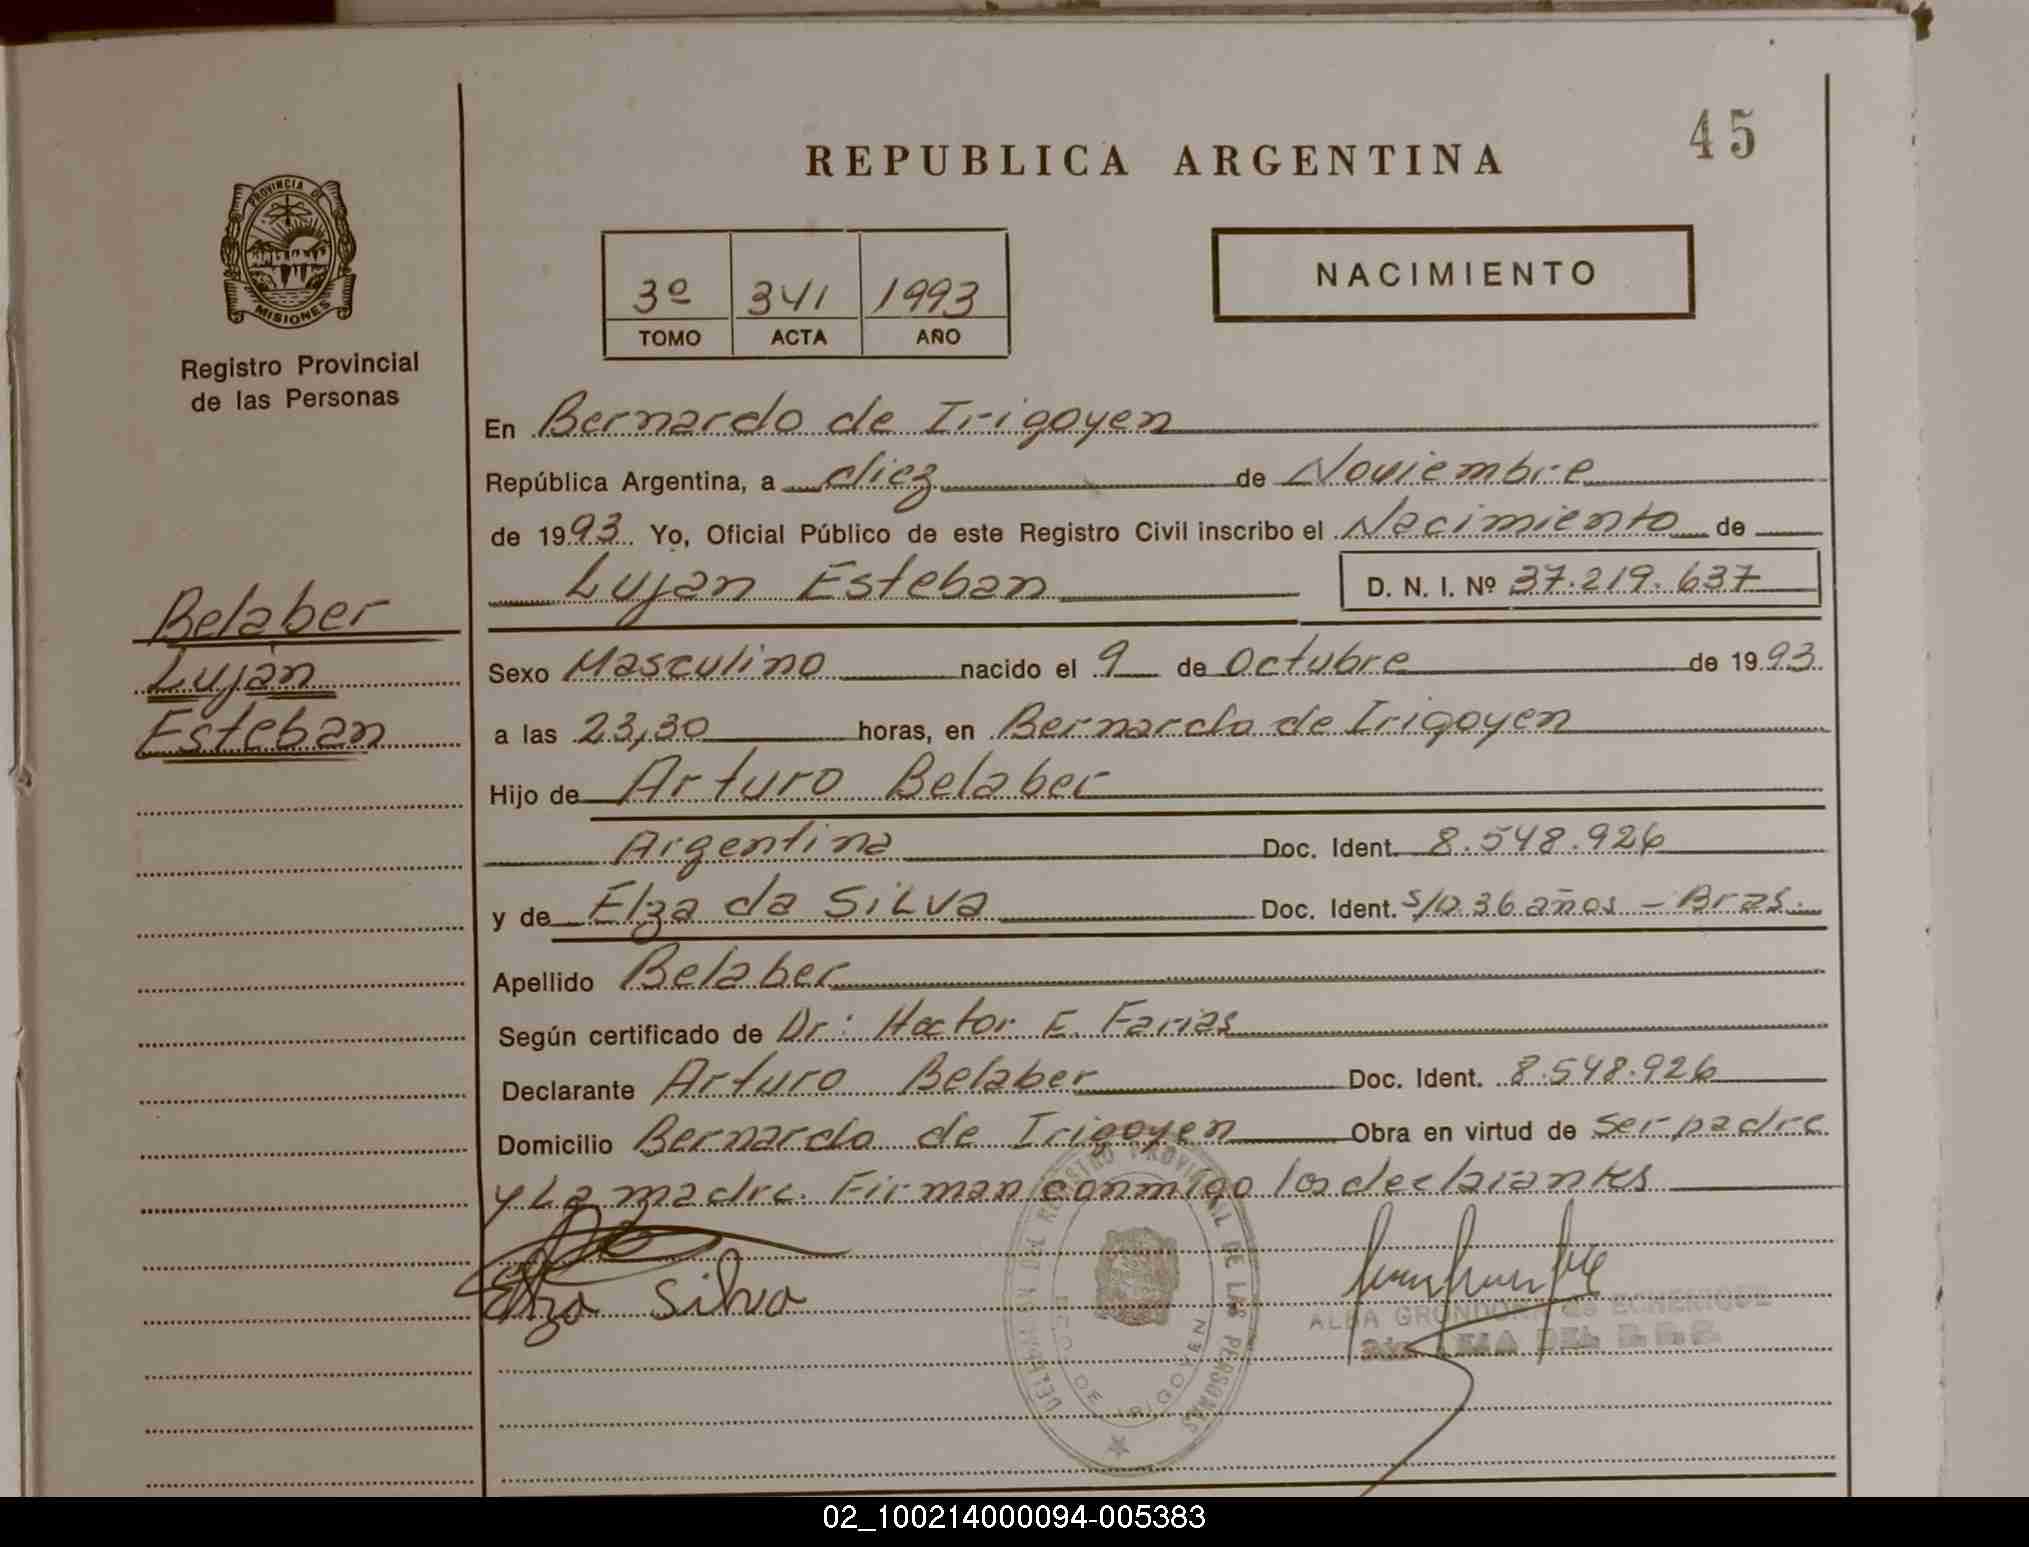 45
REPUBLICA ARGENTINA
PROVINCIA DE
MISIONES
Registro Provincial
de las Personas
3º 341 1993
TOMO ACTA AÑO
NACIMIENTO
En Bernardo de Irigoyen
República Argentina, a diez de Noviembre
de 1993. Yo, Oficial Público de este Registro Civil inscribo el Nacimiento de
Lujan Esteban D. N. I. Nº 37.219.637
Belaber
Luján
Esteban
Sexo Masculino nacido el 9 de Octubre de 1993
a las 23,30 horas, en Bernardo de Irigoyen
Hijo de Arturo Belaber
Argentina Doc. Ident. 8.548.926
y de Elza da SiLva Doc. Ident. s/D. 36 años - Bras.
Apellido Belaber
Según certificado de Dr: Hector E. Farias
Declarante Arturo Belaber Doc. Ident. 8.548.926
Domicilio Bernardo de Irigoyen Obra en virtud de ser padre
y La madre. Firman conmigo los declarantes
Elza Silva
REGISTRO PROVINCIAL DE LAS PERSONAS
DE IRIGOYEN
ALBA de ECHENIQUE
DEL
02_100214000094-005383